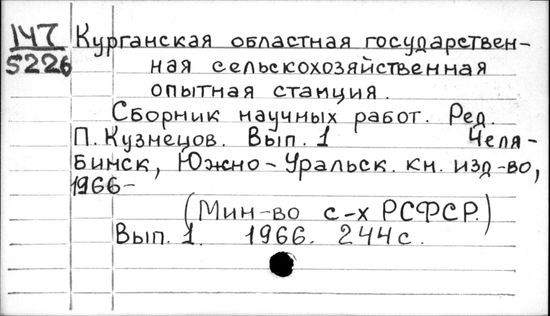 147 Курганская областная государствен-
5226 ная сельскохозяйственная
опытная станция.
Сборник научных работ. Ред.
П. Кузнецов. Вып. 1 Челя-
бинск, Южно-Уральск. кн. изд-во,
1966-
(Мин-во с-х РСФСР.)
Вып. 1. 1966. 244с.